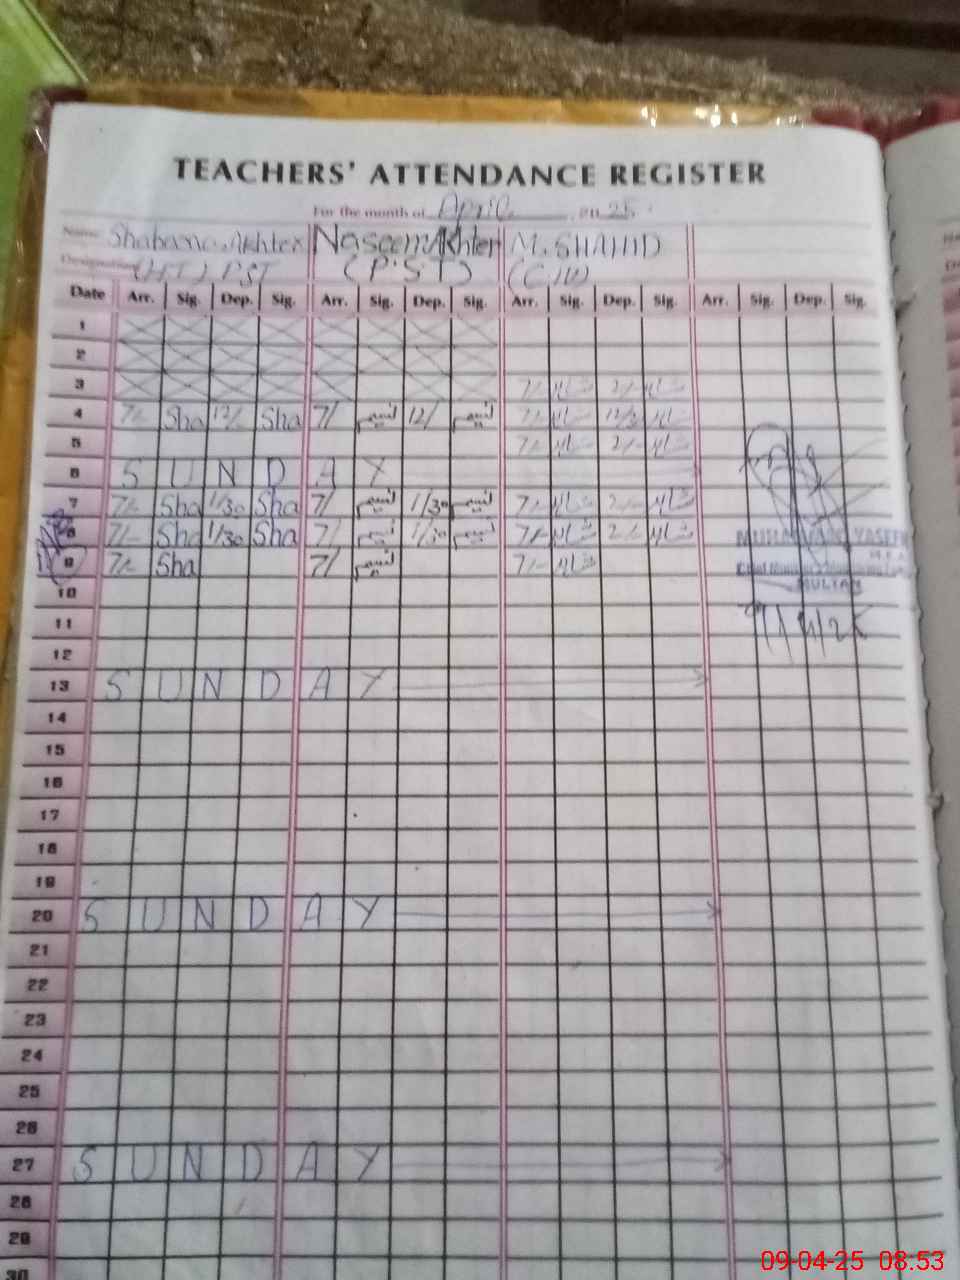 TEACHERS' ATTENDANCE REGISTER
For the month of April 2025
Name Shabana Akhter Naseem Akhter M. SHAHID
Designation PST (P.S.T)
Date Arr. Sig. Dep. Sig. Arr. Sig. Dep. Sig. Arr. Sig. Dep. Sig. Arr. Sig. Dep. Sig.
1
2
3 7/- 2/-
4 7/- Sha 12/- Sha 7/ نسیم 12/ نسیم 7/-
5 7/- 2/-
6 SUNDAY
7 7/- Sha 1/30 Sha 7/ نسیم 1/30 نسیم 7/- 2/-
8 7/- Sha 1/30 Sha 7/ نسیم 1/30 نسیم 7/- 2/-
MUHAMMAD YASEEN
9 7/- Sha 7/ نسیم 7/-
M.E.A
MULTAN
10
11 9/4/25
12
13 SUNDAY
14
15
16
17
18
19
20 SUNDAY
21
22
23
24
25
26
27 SUNDAY
28
29
30
09-04-25 08.53